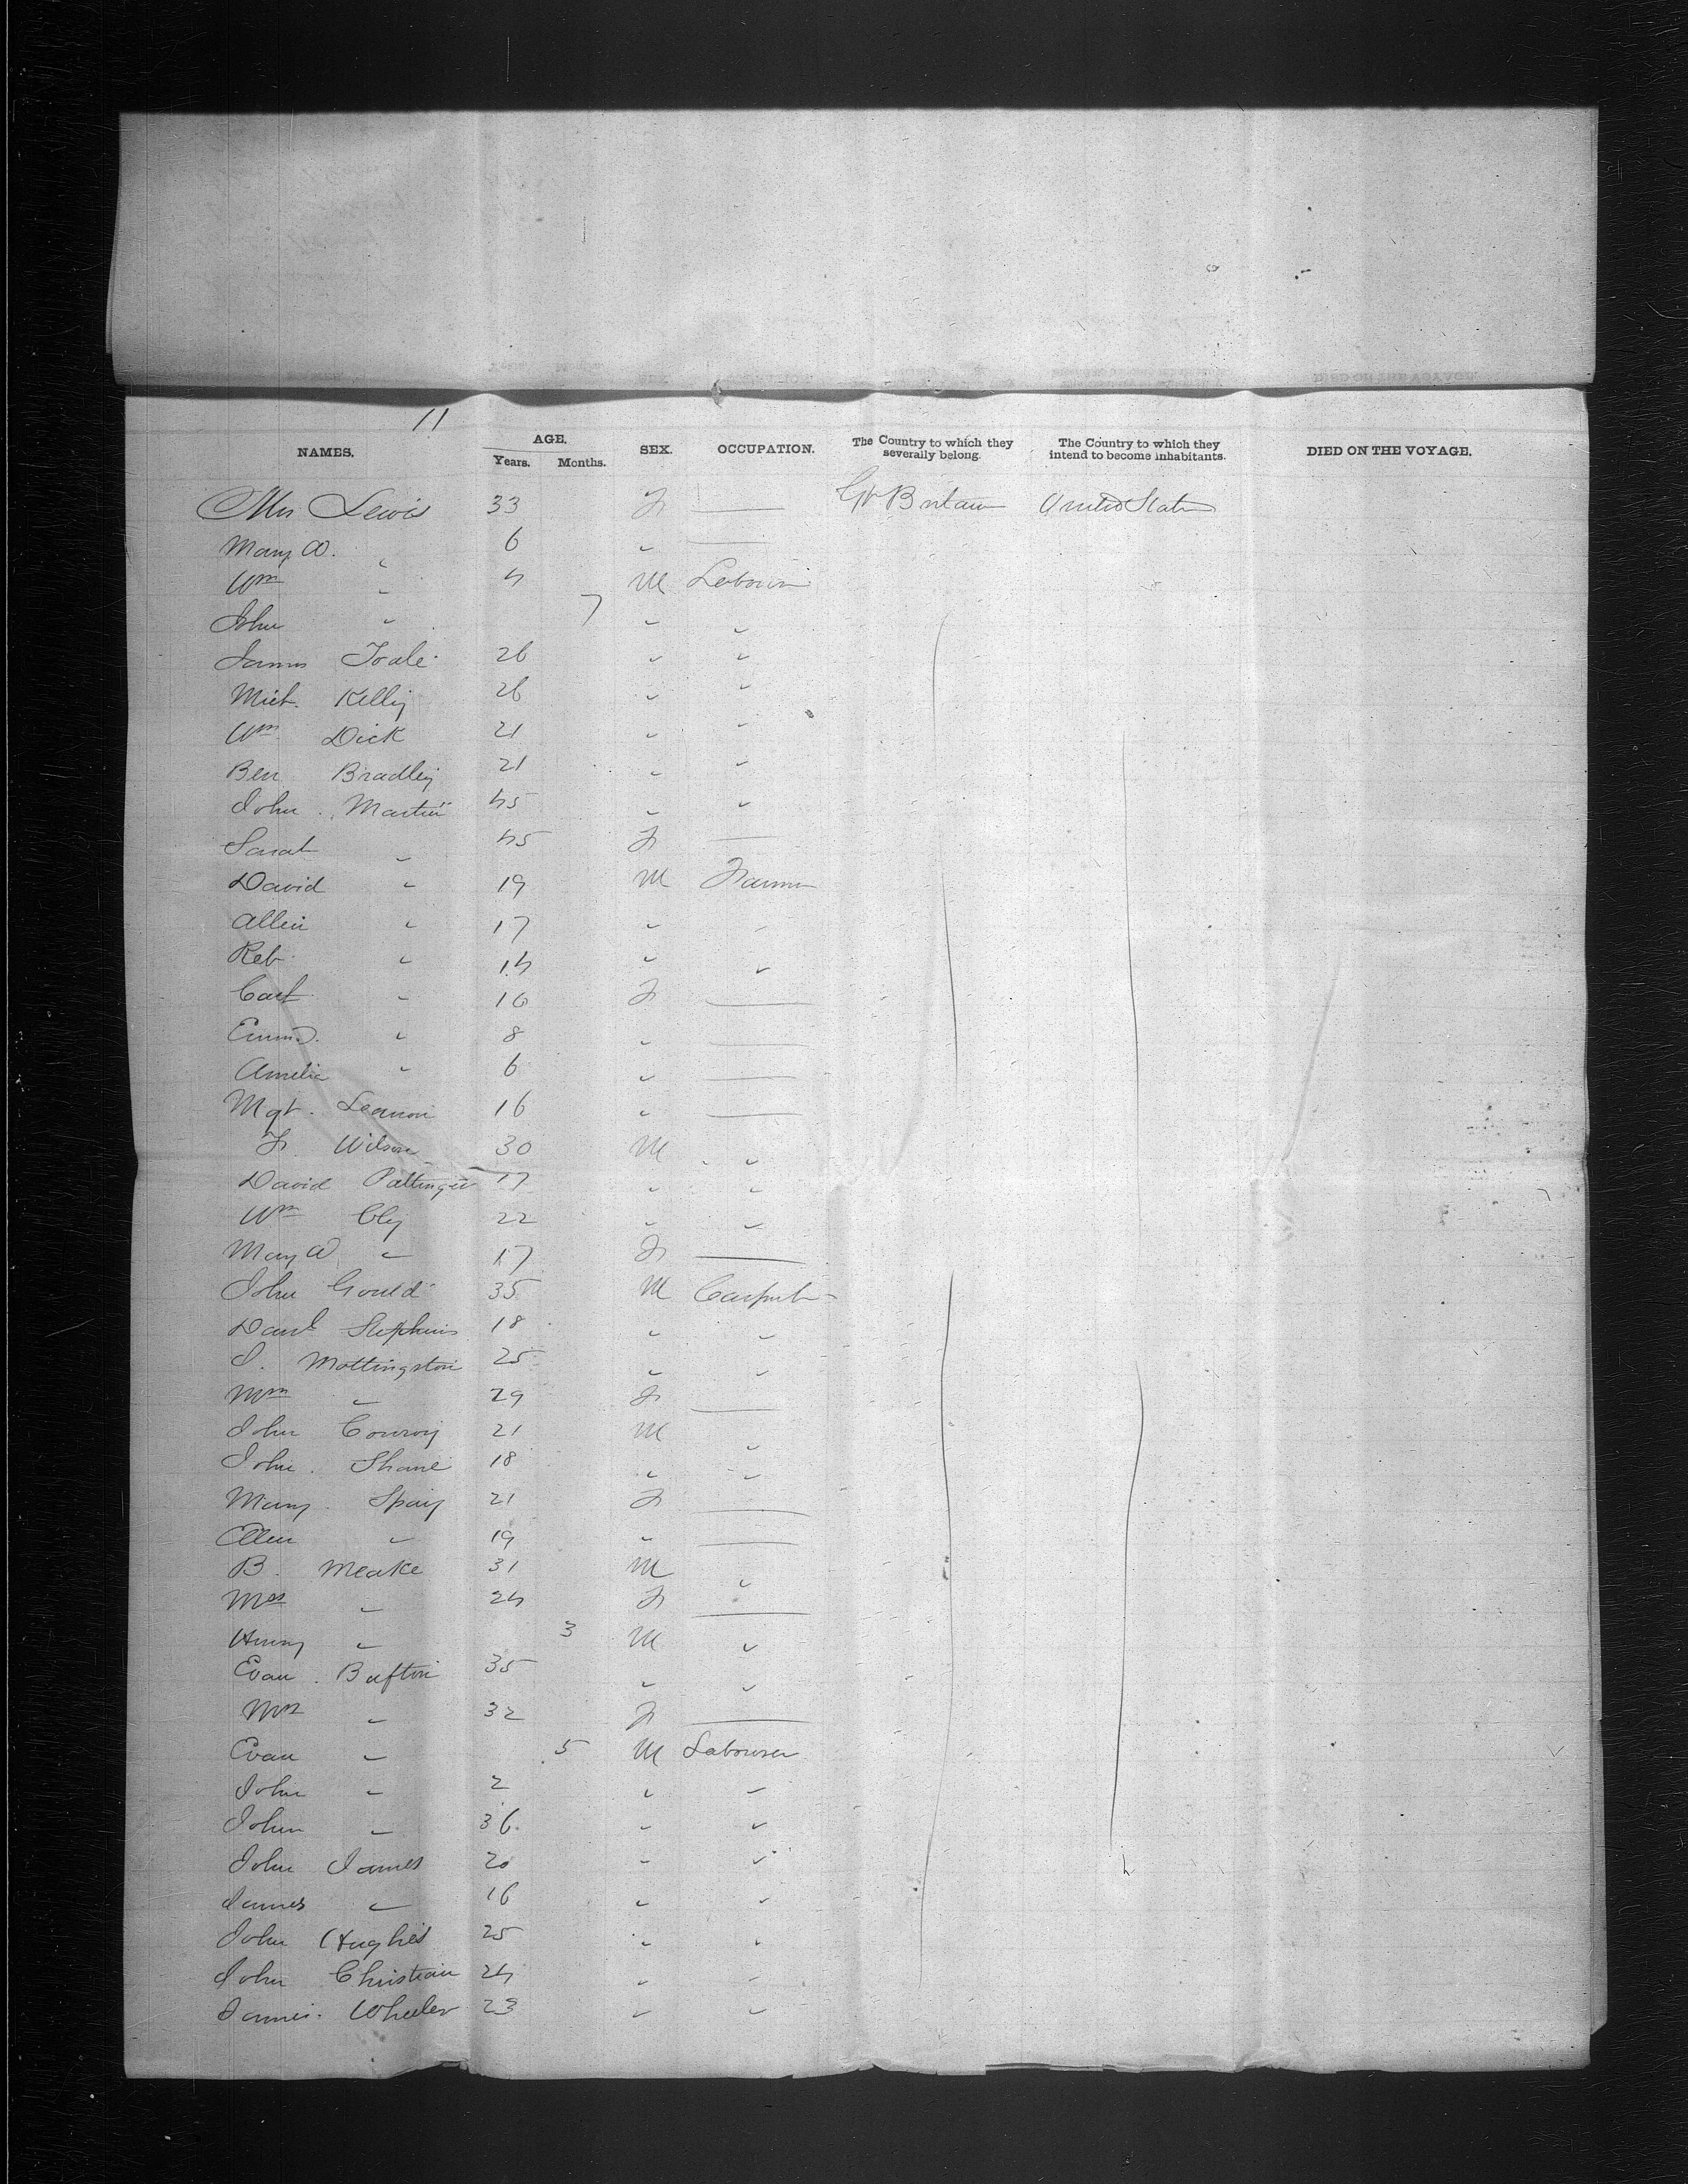 11
NAMES. AGE. Years. Months. SEX. OCCUPATION. The Country to which they severally belong. The Country to which they intend to become inhabitants. DIED ON THE VOYAGE.
Mrs Lewis 33 F — Gt Britain United States
Mary A. " 6 " —
Wm " 4 M Labourer
John " 7 " "
James Toale 26 " "
Mich. Kelly 26 " "
Wm Dick 21 " "
Ben Bradley 21 " "
John Martin 45 " "
Sarah " 45 F —
David " 19 M Farmer
Allen " 17 " "
Rob " 14 " "
Cath " 10 F —
Emma " 8 " —
Amelia " 6 " —
Mgt. Leanon 16 " —
F. Wilson 30 M "
David 17 " "
Wm Cly 22 " "
Mary A " 17 F —
John Gould 35 M Carpenter
Danl Stephens 18 " "
J. Mottingston 25 " "
Mrs " 29 F —
John Conroy 21 M "
John Shane 18 " "
Mary 21 F —
Ellen " 19 " —
B. Meake 31 M "
Mrs " 24 F —
Henry " 3 M "
Evan Bufton 35 " "
Mrs " 32 F —
Evan " 5 M Labourer
John " 2 " "
John " 36 " "
John James 20 " "
James " 16 " "
John Hughes 25 " "
John Christian 24 " "
James Wheeler 23 " "